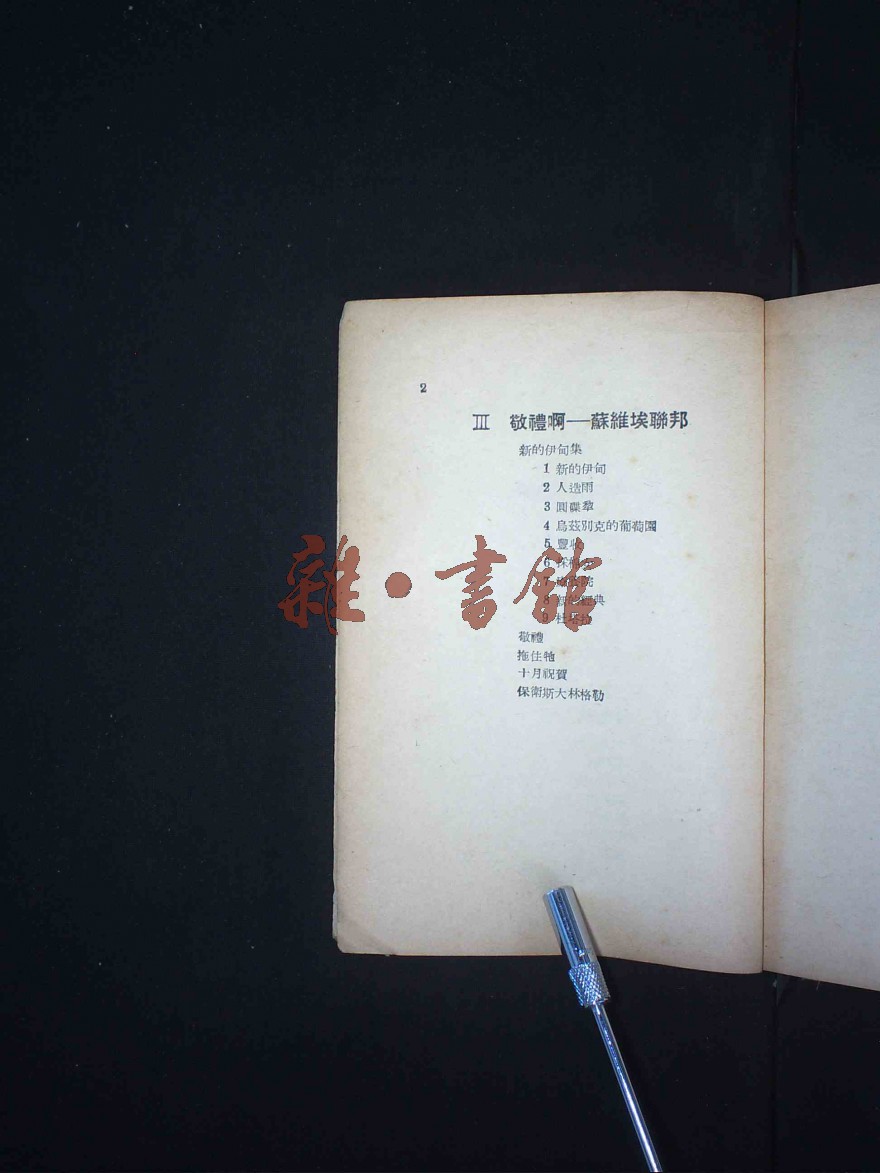 2
III 敬禮啊——蘇維埃聯邦
新的伊甸集
1 新的伊甸
2 人造雨
3 圓蝶羣
4 烏茲別克的葡萄園
5 豐收
6
7
8 經典
9
敬禮
拖住牠
十月祝賀
保衛斯大林格勒
雜·書館